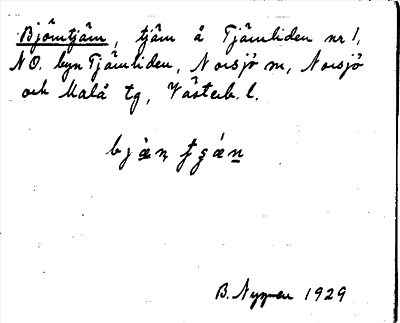 Björntjärn, tjärn å Tjärnliden nr 1,
NO. byn Tjärnliden, Norsjö sn, Norsjö
och Malå tg, Västerb. l.
B. Nyman 1929